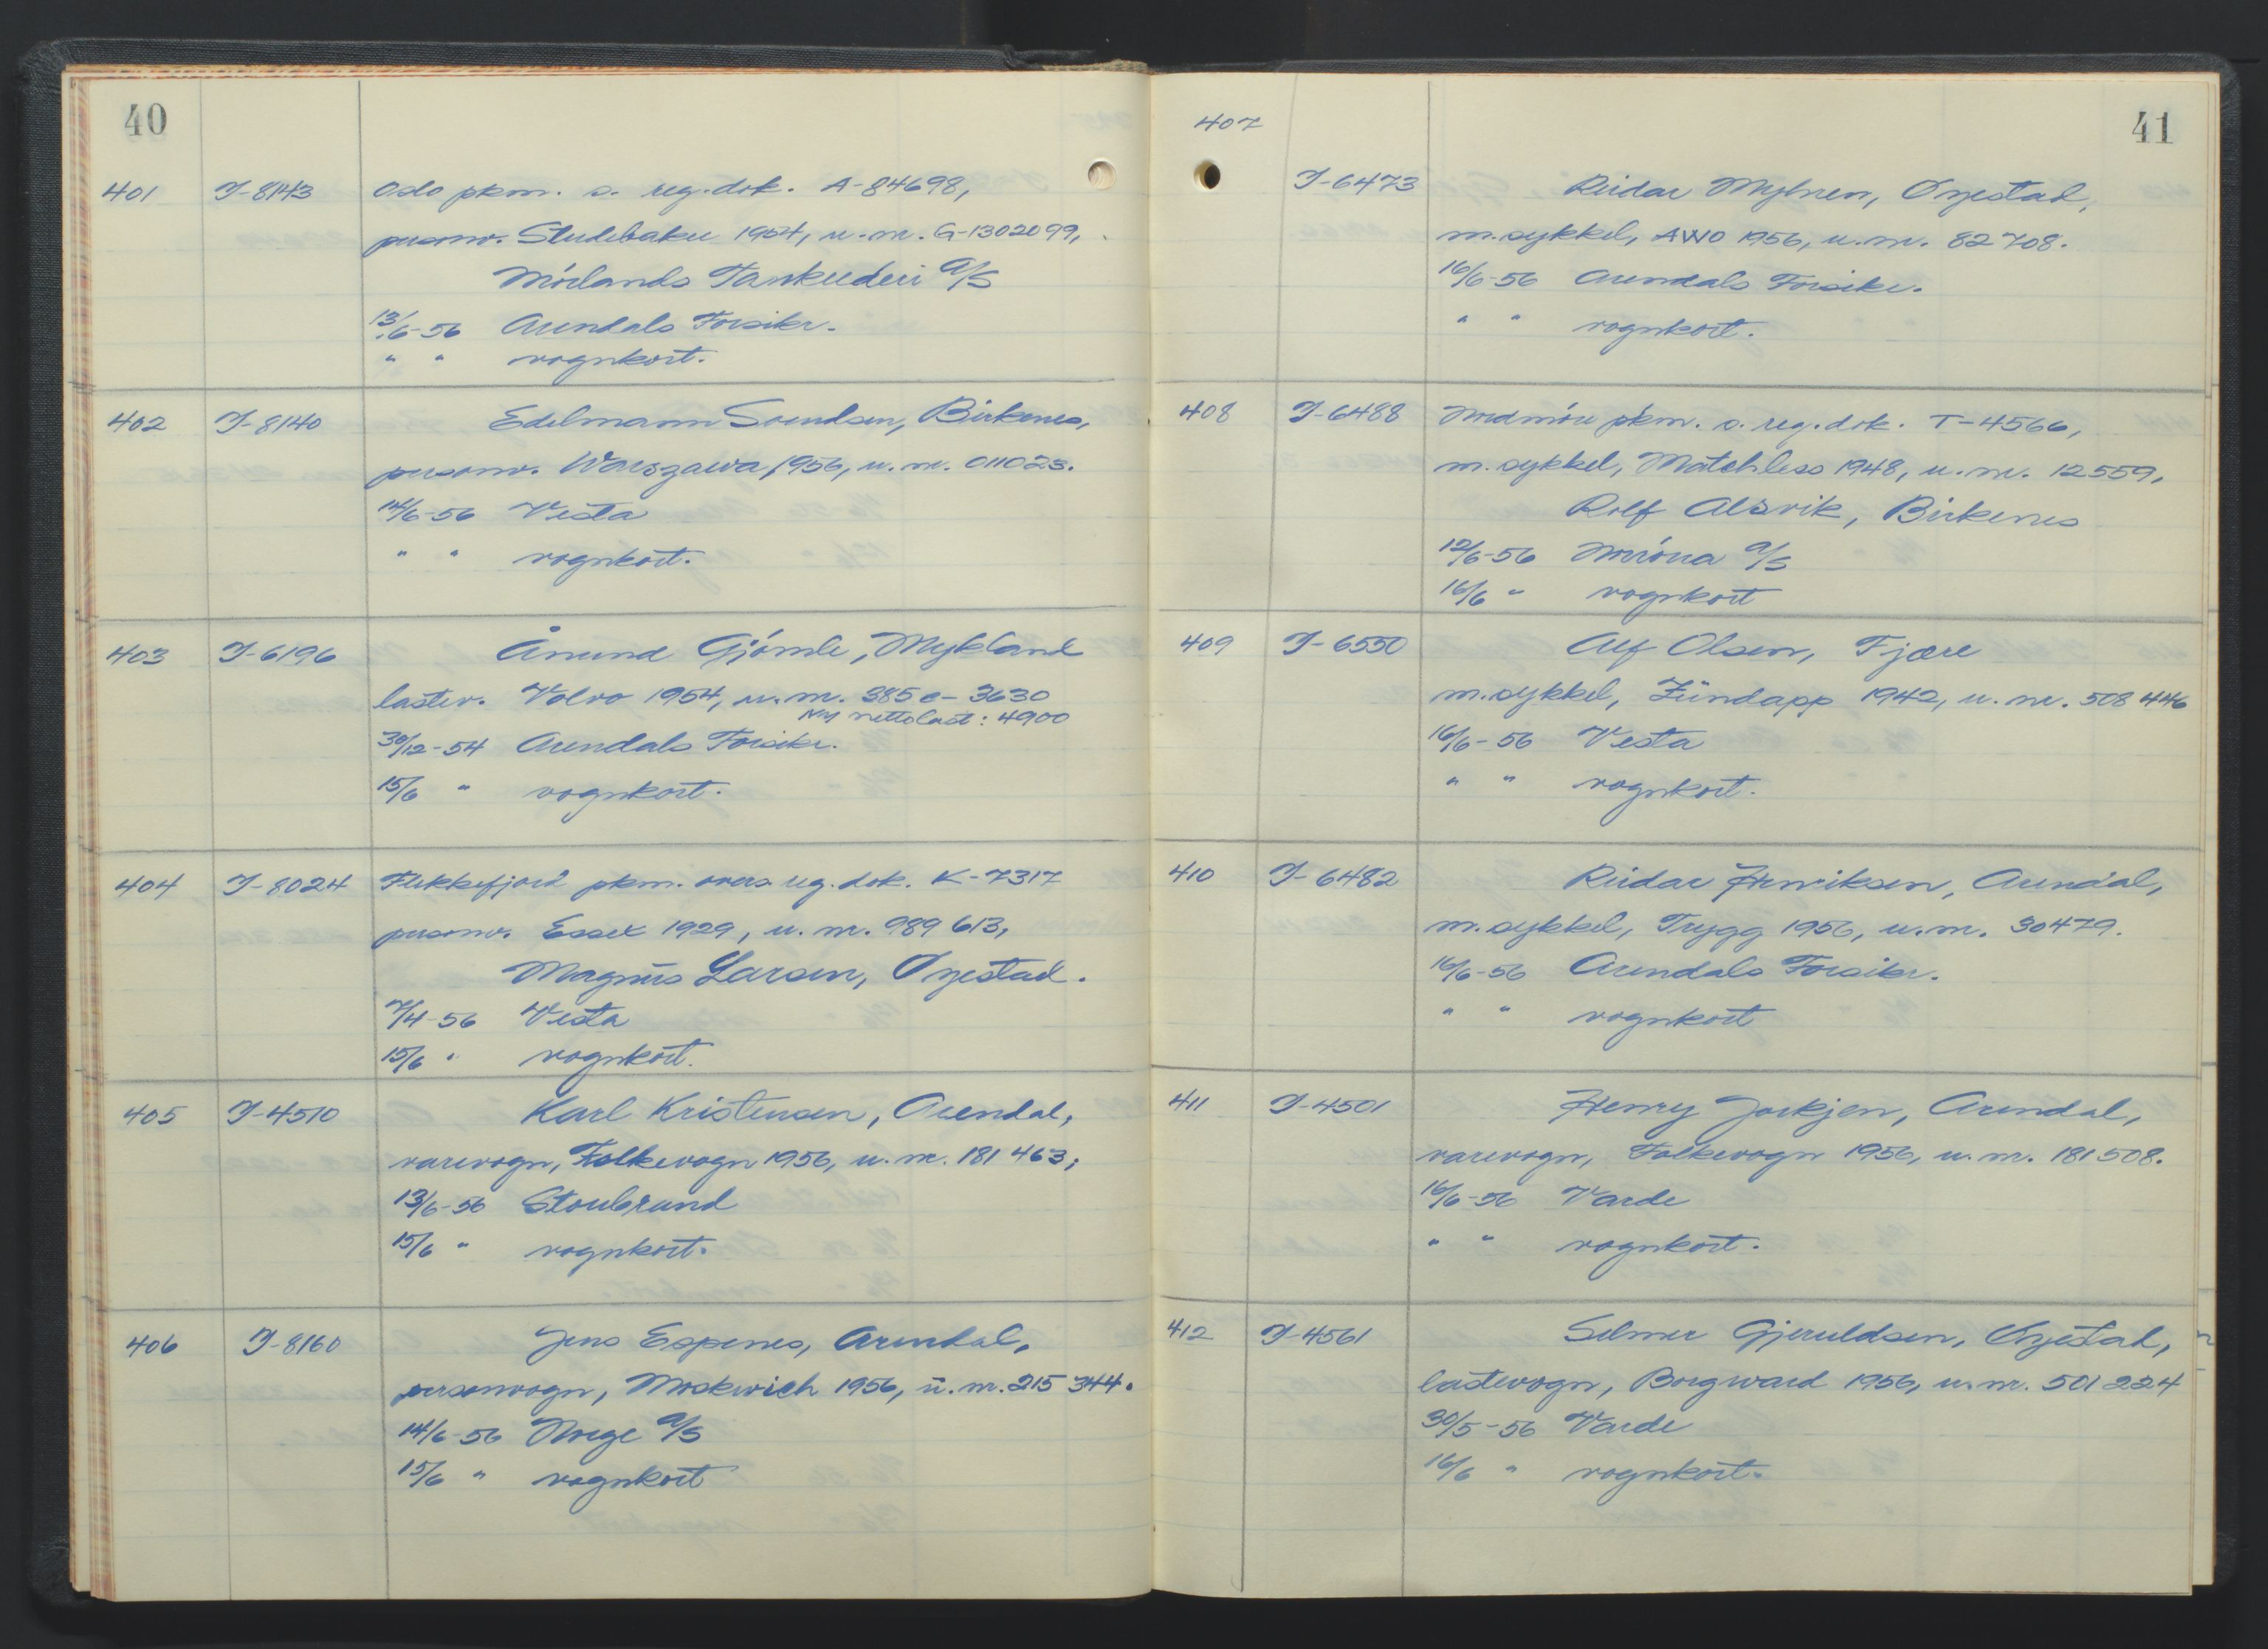 40
401 I-8143 Oslo pkm. s. reg.dok. A-84698,
personv. Studebaker 1954, u.nr. G-1302099,
Mörlands Tankrederi A/S
13/6-56 Arendals Forsikr.
" " vognkort.
402 I-8140 Edelmann Svendsen, Birkenes,
personv. Warszawa 1956, u.nr. 011023.
14/6-56 Vesta
" " vognkort.
403 I-6196 Ånund Gjömle, Mykland
lastev. Volvo 1954, u.nr. 385 c - 3630
Ny nettolast: 4900
30/12-54 Arendals Forsikr.
15/6 " vognkort.
404 I-8024 Flekkefjord pkm. overs. reg.dok. K-7317
personv. Essex 1929, u.nr. 989 613,
Magnus Larsen, Öyestad.
7/4-56 Vesta
15/6 " vognkort.
405 I-4510 Karl Kristensen, Arendal,
varevogn, Folkevogn 1956, u.nr. 181 463;
13/6-56 Storebrand
15/6 " vognkort.
406 I-8160 Jens Espenes, Arendal,
personvogn, Moskwich 1956, u.nr. 215 344.
14/6-56 Norge A/S
15/6 " vognkort
41
407 I-6473 Reidar Myhren, Öyestad,
m.sykkel, AWO 1956, u.nr. 82708.
16/6-56 Arendals Forsikr.
" " vognkort.
408 I-6488 Nordmöre pkm. s. reg.dok. T-4566,
m.sykkel, Matchless 1948, u.nr. 12559,
Rolf Alsvik, Birkenes
12/6-56 Norröna A/S
16/6 " vognkort
409 I-6550 Alf Olsen, Fjære
m.sykkel, Zündapp 1942, u.nr. 508 446
16/6-56 Vesta
" " vognkort.
410 I-6482 Reidar Henriksen, Arendal,
m.sykkel, Trygg 1956, u.nr. 30479.
16/6-56 Arendals Forsikr.
" " vognkort
411 I-4501 Henry Jorkjen, Arendal,
varevogn, Folkevogn 1956, u.nr. 181508.
16/6-56 Varde
" " vognkort.
412 I-4561 Selmer Gjeruldsen, Öyestad,
lastevogn, Borgward 1956, u.nr. 501224
30/5-56 Varde
16/6 " vognkort.